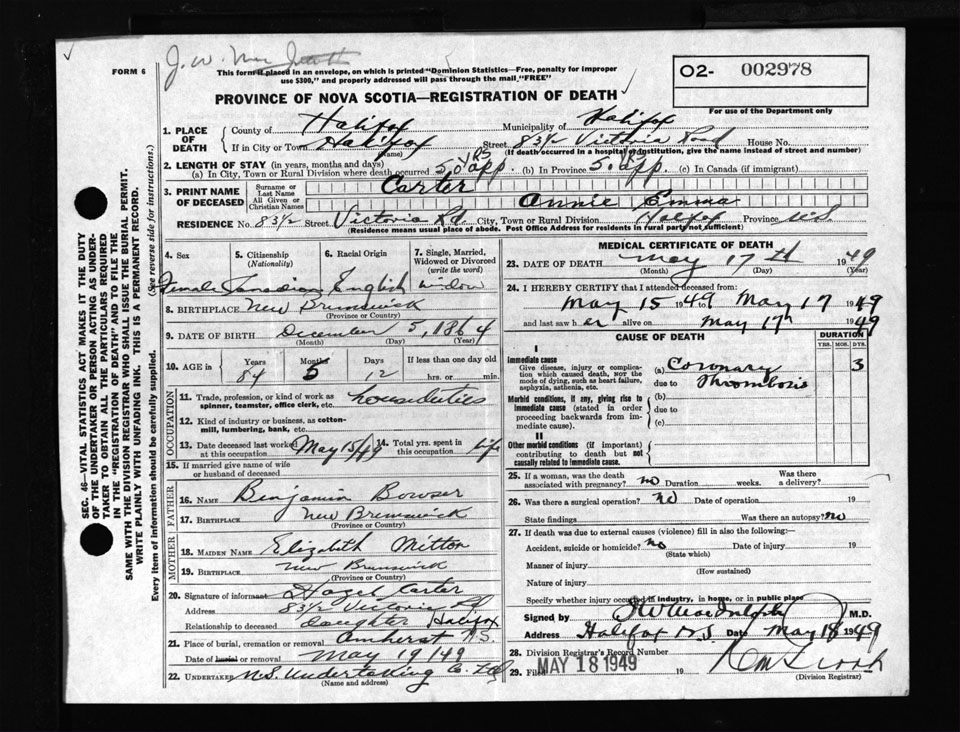 FORM 6
J. W.
This form if placed in an envelope, on which is printed "Dominion Statistics—Free, penalty for improper
use $300," and properly addressed will pass through the mail "FREE"
O2- 002978
For use of the Department only
PROVINCE OF NOVA SCOTIA—REGISTRATION OF DEATH
1. PLACE OF DEATH
County of Halifax Municipality of Halifax
If in City or Town Halifax (Name) Street 83 1/2 Victoria Road House No.
(If death occurred in a hospital or institution, give the name instead of street and number)
2. LENGTH OF STAY (in years, months and days)
(a) In City, Town or Rural Division where death occurred 50 YRS app. (b) In Province 50 YRS app. (c) In Canada (if immigrant)
3. PRINT NAME OF DECEASED
Surname or Last Name Carter
All Given or Christian Names Annie Emma
RESIDENCE No. 83 1/2 Street Victoria Rd. City, Town or Rural Division Halifax Province N.S.
(Residence means usual place of abode. Post Office Address for residents in rural parts not sufficient)
4. Sex Female
5. Citizenship (Nationality) Canadian
6. Racial Origin English
7. Single, Married, Widowed or Divorced (write the word) widow
8. BIRTHPLACE New Brunswick
(Province or Country)
9. DATE OF BIRTH December 5, 1864
(Month) (Day) (Year)
10. AGE in Years 84 Months 5 Days 12 If less than one day old hrs. or min.
OCCUPATION
11. Trade, profession, or kind of work as spinner, teamster, office clerk, etc. house duties
12. Kind of industry or business, as cotton-mill, lumbering, bank, etc.
13. Date deceased last worked at this occupation May 15/49 14. Total yrs. spent in this occupation life
15. If married give name of wife or husband of deceased
FATHER
16. NAME Benjamin Bowser
17. BIRTHPLACE New Brunswick
(Province or Country)
MOTHER
18. MAIDEN NAME Elizabeth Mitton
19. BIRTHPLACE New Brunswick
(Province or Country)
20. Signature of informant Hazel Carter
Address 83 1/2 Victoria Rd
Relationship to deceased daughter Halifax
21. Place of burial, cremation or removal Amherst N.S.
Date of burial or removal May 19/49
22. UNDERTAKER N.S. Undertaking Co. Ltd
(Name and address)
MEDICAL CERTIFICATE OF DEATH
23. DATE OF DEATH May 17th 1949
(Month) (Day) (Year)
24. I HEREBY CERTIFY that I attended deceased from:
May 15 1949 May 17 1949
and last saw her alive on May 17th 1949
CAUSE OF DEATH DURATION
YRS. MOS. DYS.
I
Immediate cause
Give disease, injury or complication which caused death, NOT the mode of dying, such as heart failure, asphyxia, asthenia, etc.
(a) Coronary 3
due to Thrombosis
Morbid conditions, if any, giving rise to immediate cause (stated in order proceeding backwards from immediate cause).
(b)
due to
(c)
II
Other morbid conditions (if important) contributing to death but not causally related to immediate cause.
25. If a woman, was the death associated with pregnancy? no Duration weeks. Was there a delivery?
26. Was there a surgical operation? no Date of operation 19
State findings Was there an autopsy? no
27. If death was due to external causes (violence) fill in also the following:
Accident, suicide or homicide? no Date of injury 19
(State which)
Manner of injury
(How sustained)
Nature of injury
Specify whether injury occurred in industry, in home, or in public place
Signed by M.D.
Address Halifax N.S. Date May 18 1949
28. Division Registrar's Record Number
29. Filed MAY 18 1949 19
(Division Registrar)
SEC. 46—VITAL STATISTICS ACT MAKES IT THE DUTY
OF THE UNDERTAKER OR PERSON ACTING AS UNDER-
TAKER TO OBTAIN ALL THE PARTICULARS REQUIRED
IN THE "REGISTRATION OF DEATH" AND TO FILE THE
SAME WITH THE DIVISION REGISTRAR WHO SHALL ISSUE THE BURIAL PERMIT.
WRITE PLAINLY WITH UNFADING INK. THIS IS A PERMANENT RECORD.
Every item of information should be carefully supplied. (See reverse side for instructions.)